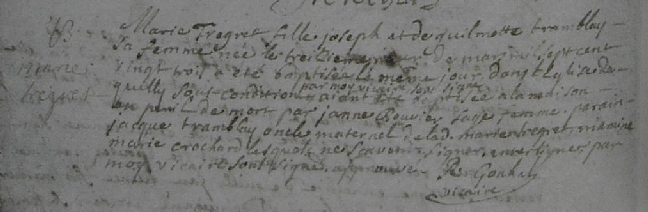 B.
marie
tregret
Marie Tregret fille joseph et de guilmette tramblay
sa femme née le troisieme de mars sept cent
vingt trois a été baptisée le meme jour dans l'eglise de
quilly sous condition par moy vicaire sous signé aiant été baptisée a la maison
en peril de mort par janne Bouvier sage femme parain
jacque tramblay oncle maternel de lad. marie tregret maraine
marie crochard lesquels ne scavent signer, entre lignes par
moy vicaire sous signé approuvé
vicaire